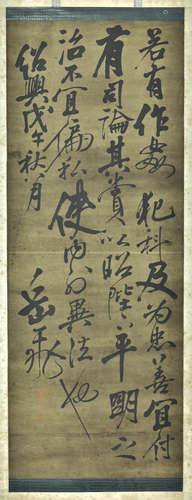 若有作姦犯科及为忠善宜付
有司論其賞以昭陛下平明之
治不宜偏私使内外異法也
绍興戊午秋八月
岳飛